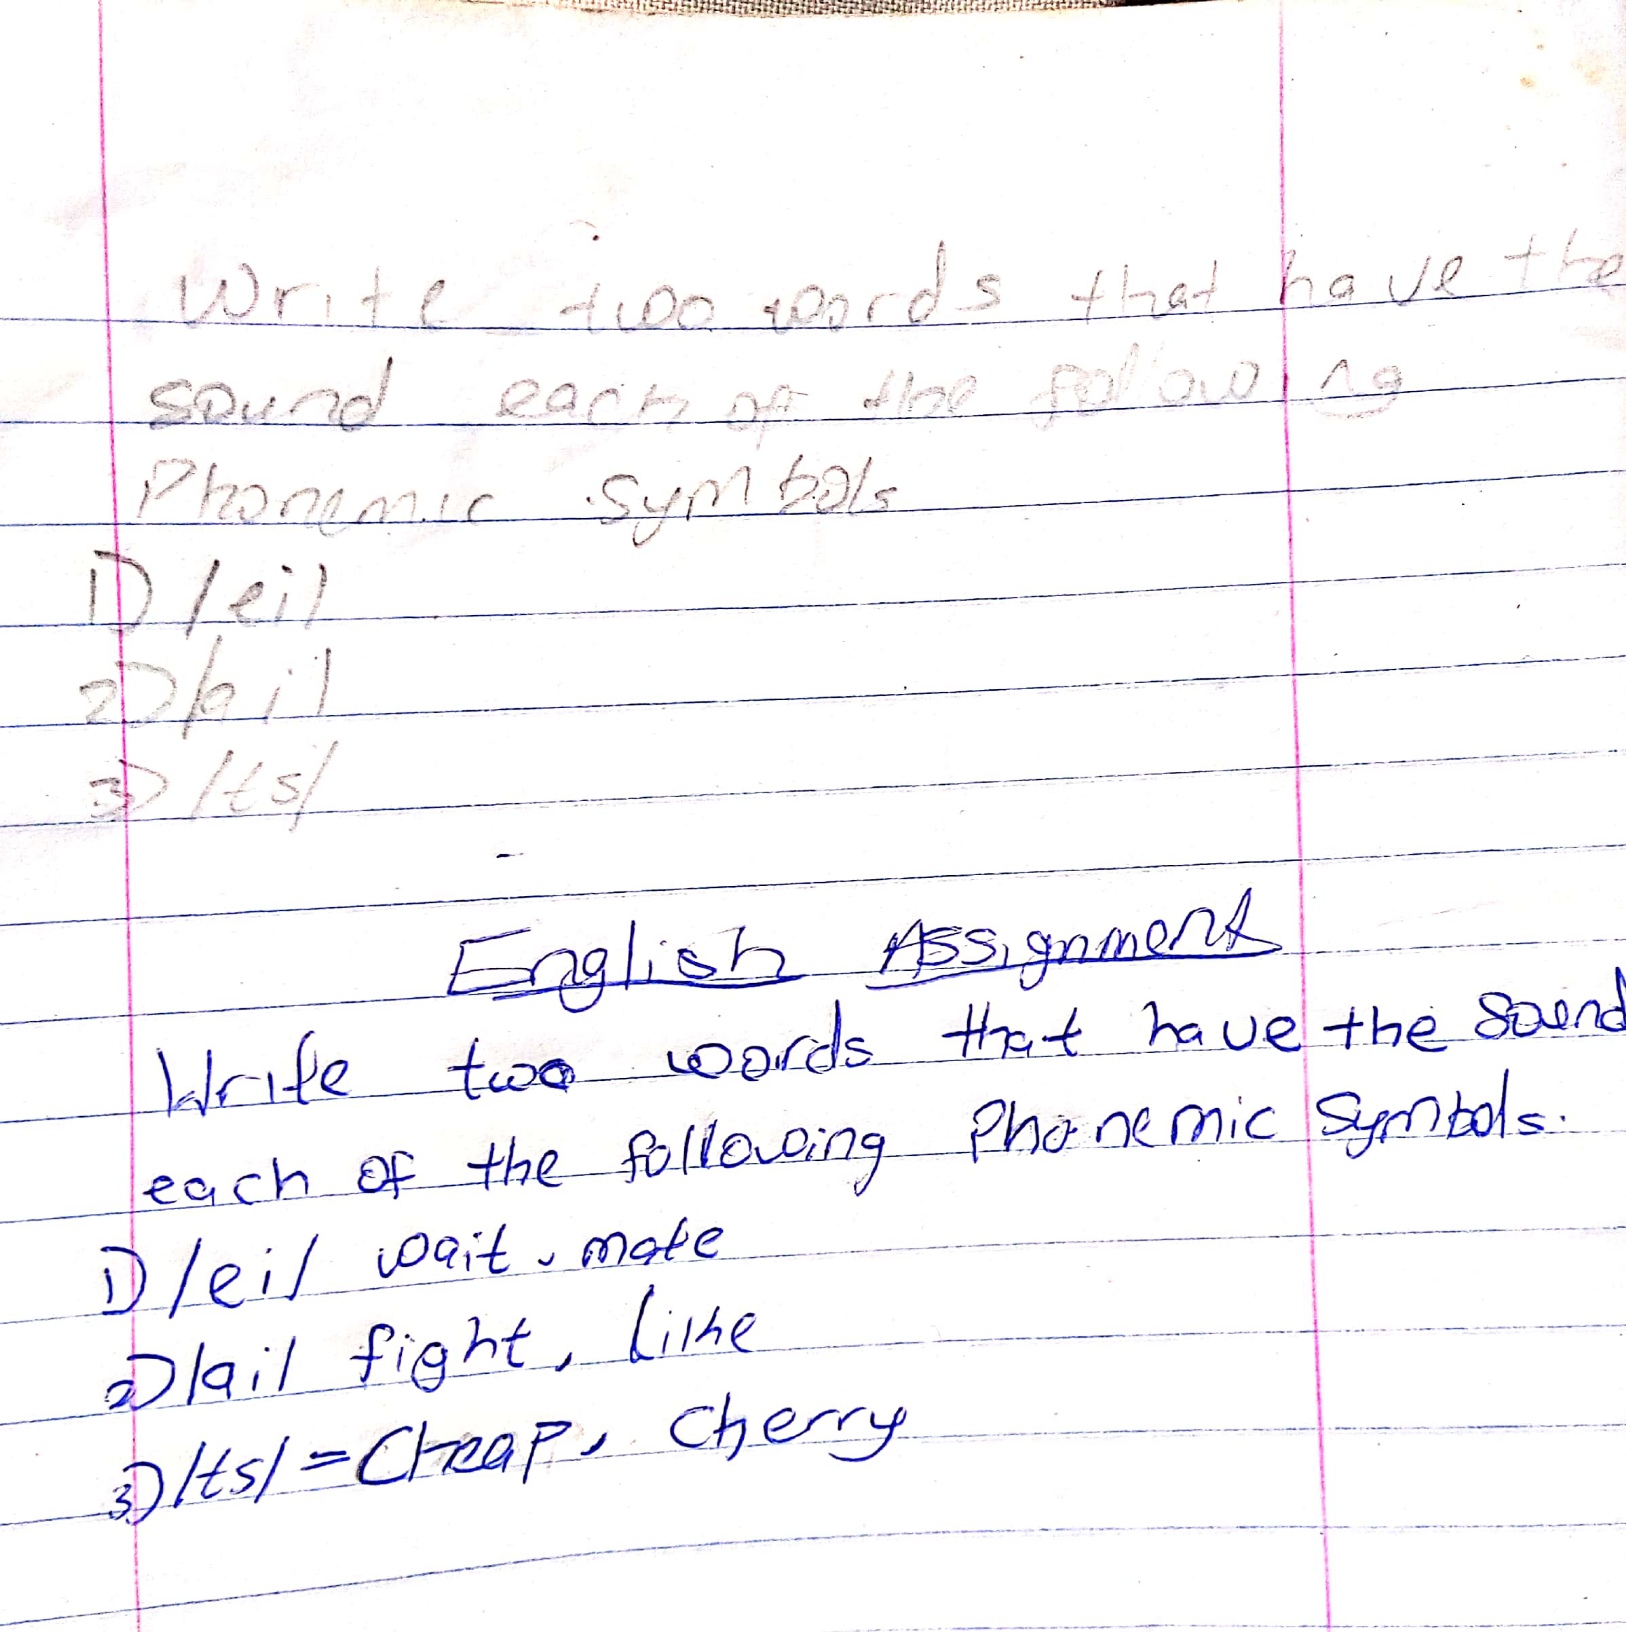 Write two words that have the
sound each of the following
Phonemic symbols
1) /ei/
2) /ai/
3) /ts/
English Assignment
Write two words that have the sound
each of the following Phonemic Symbols.
1) /ei/ wait, mate
2) /ai/ fight, like
3) /ts/ = Cheap, Cherry